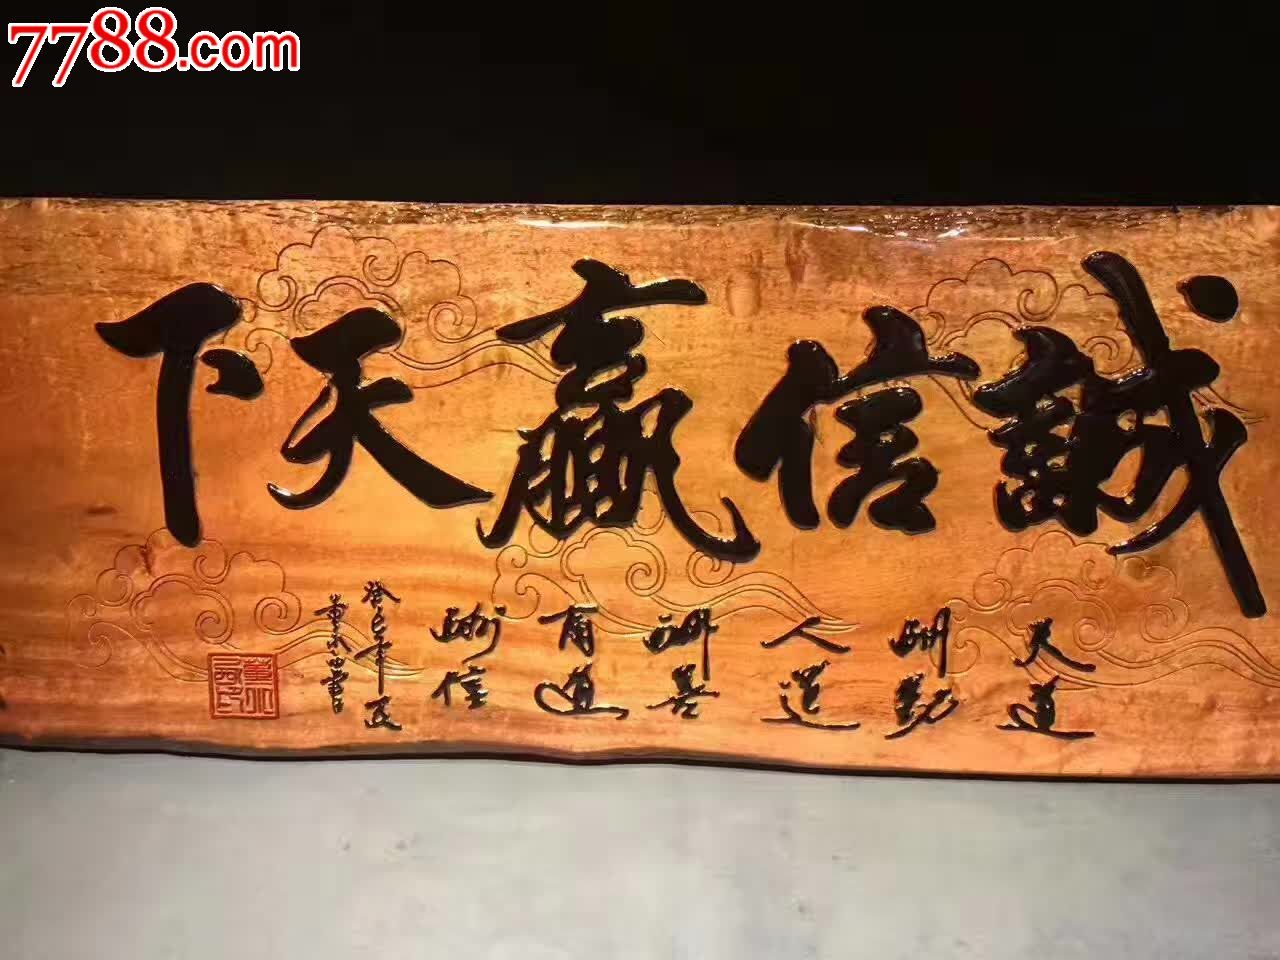 7788.com
誠信贏天下
天道
酬勤
人道
酬善
商道
酬信
癸巳年夏